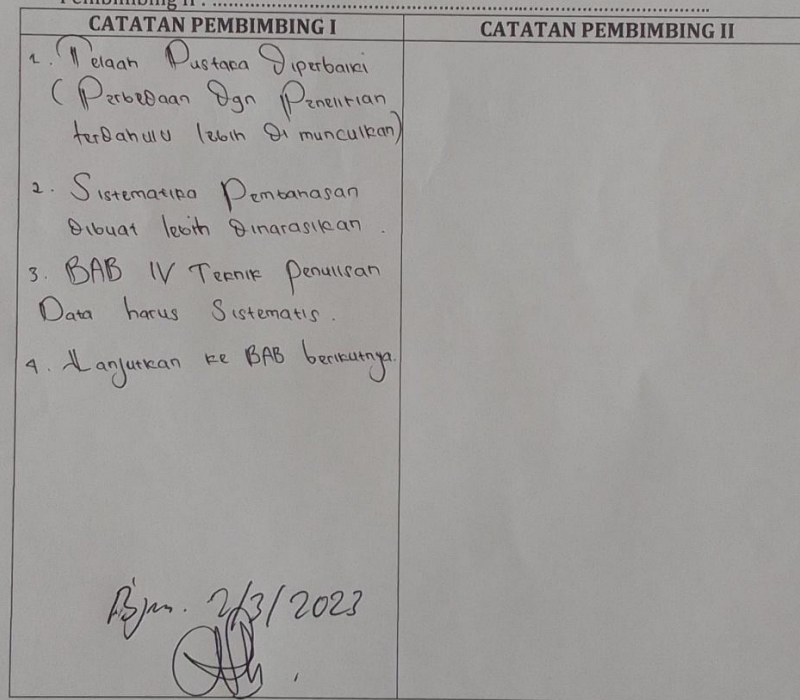 Pembimbing II : ........................................................................
CATATAN PEMBIMBING I
CATATAN PEMBIMBING II
1. Telaah Pustaka Diperbaiki
(Perbedaan Dgn Penelitian
terdahulu lebih Di munculkan)
2. Sistematika Pembahasan
Dibuat lebih Dinarasikan.
3. BAB IV Teknik Penulisan
Data harus Sistematis.
4. Lanjutkan ke BAB berikutnya.
Bjm. 2/3/2023